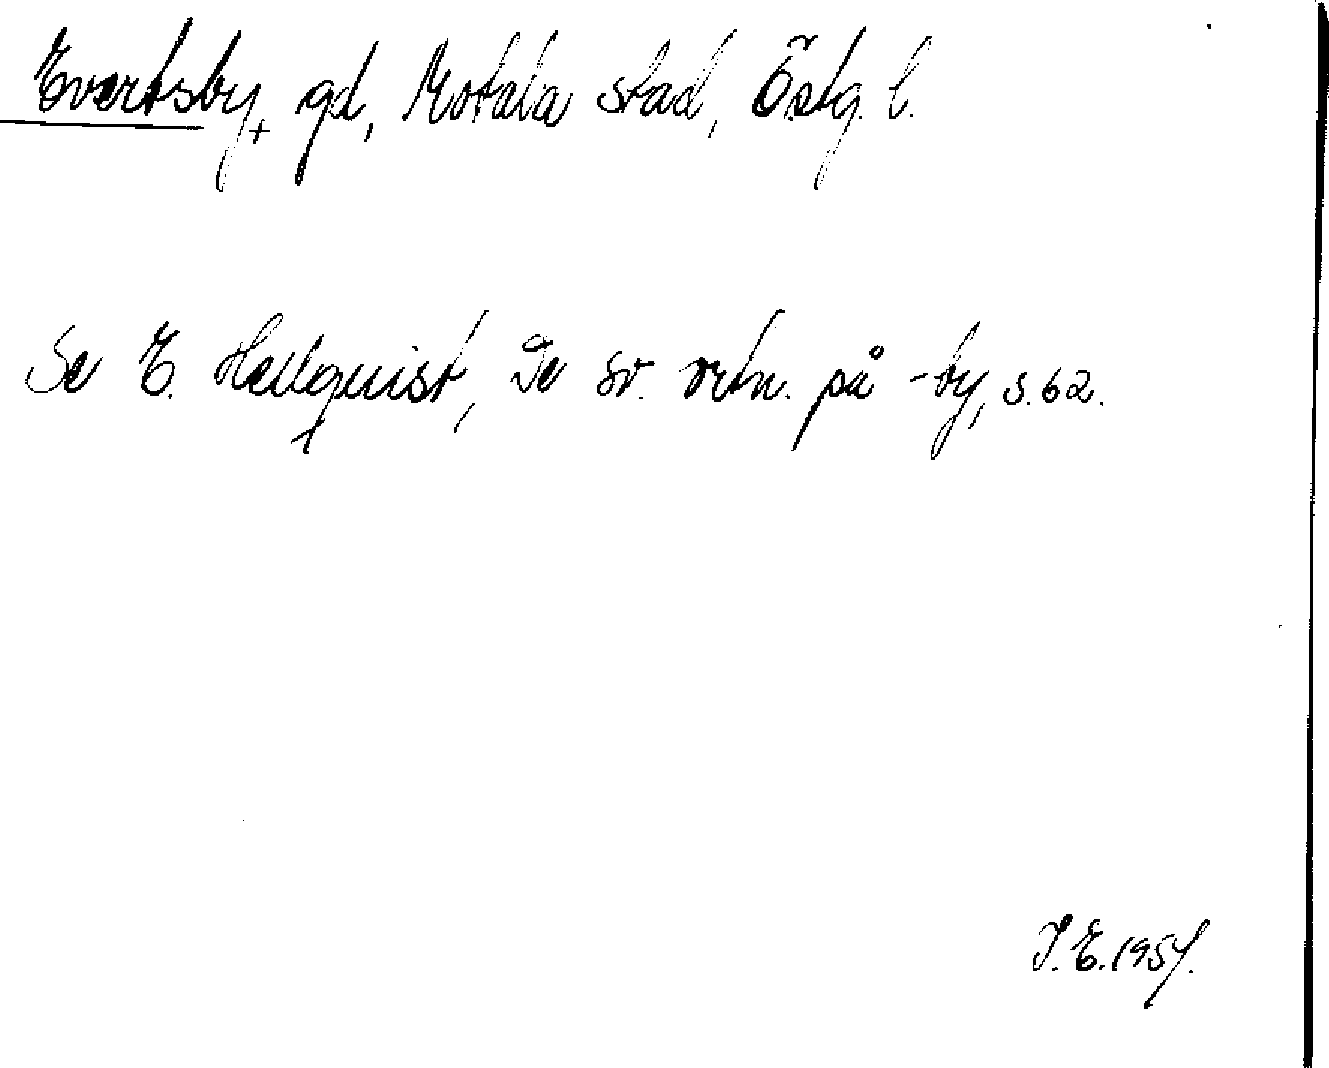 Evertsby, gd, Motala stad, Östg. l.
Se E. Hellquist, De sv. ortn. på -by, s. 62.
J. E. 1954.